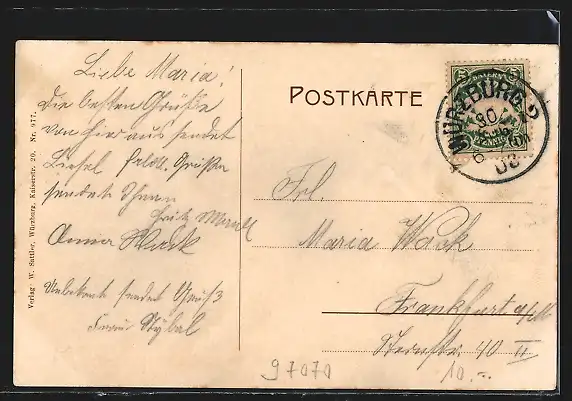 Liebe Maria!
Die besten Grüße
von hier aus sendet
Liesel Grüße
sendet Ihnen
Fritz
Anna Wack
Unbekannt sendet Gruß
Frau
Verlag: W. Sattler, Würzburg, Kaiserstr. 20. Nr. 977.
POSTKARTE
BAYERN
5 5
PFENNIG
WÜRZBURG 2
Frl.
Maria Wack
Frankfurt a/M
Sternstr. 40 II
97070
10.--